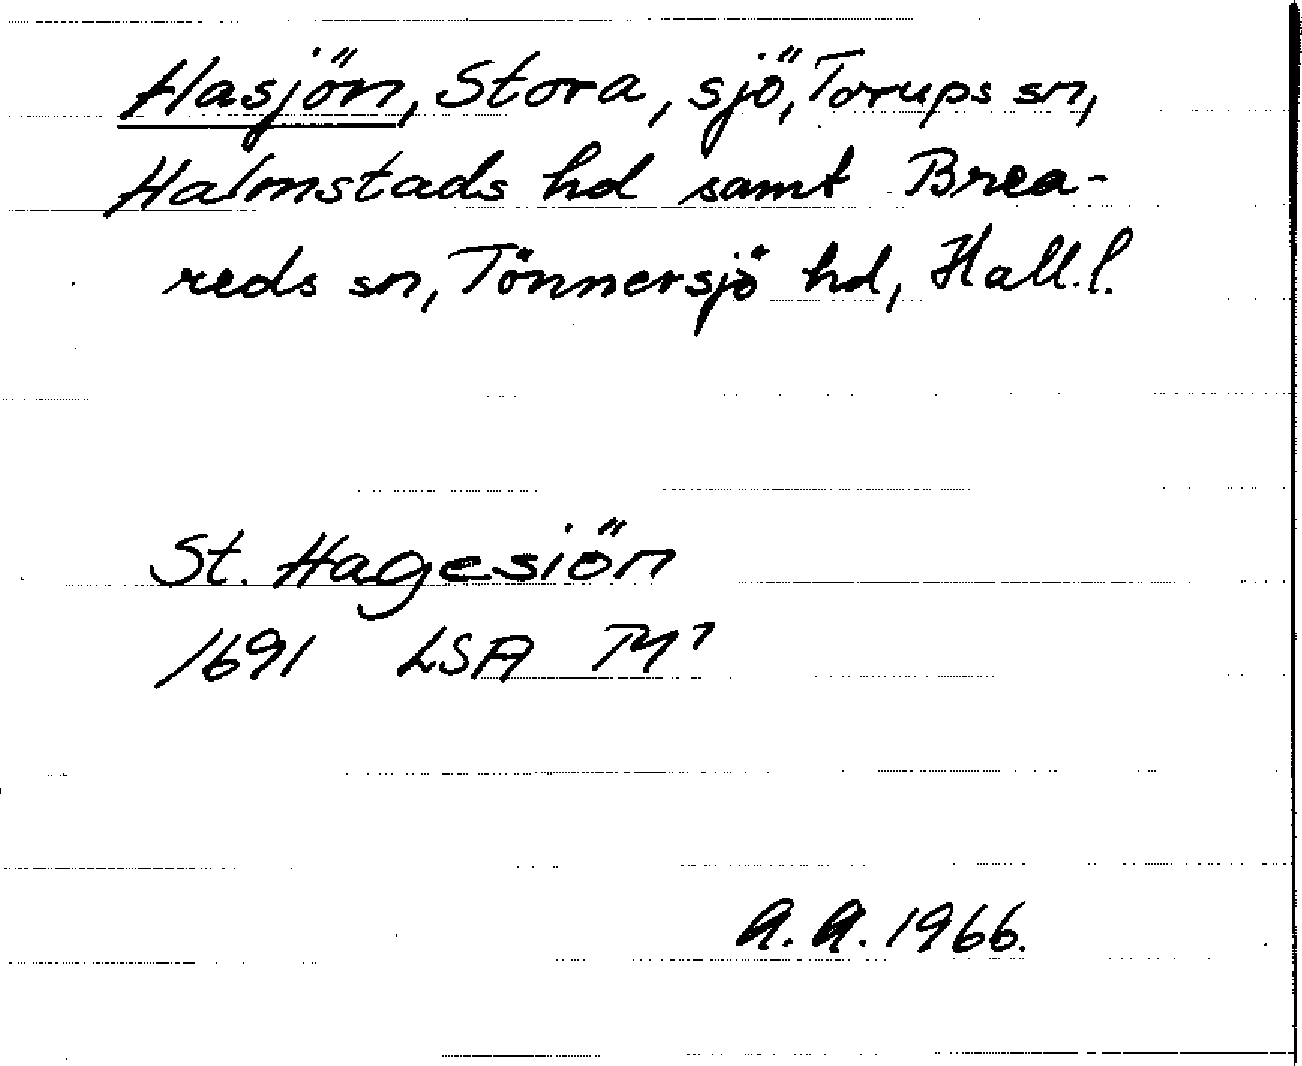 Hasjön, Stora, sjö, Torups sn,
Halmstads hd samt Brea-
reds sn, Tönnersjö hd, Hall.l.
St. Hagesiön
1691 LSA
A.A. 1966.